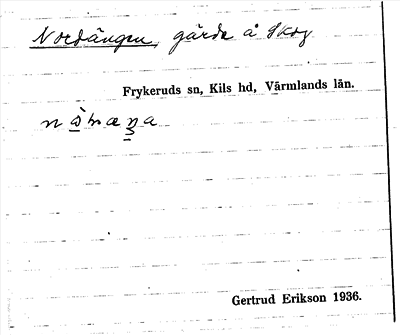 Nordängen, gärde å Skog
Frykeruds sn, Kils hd, Värmlands län.
Gertrud Erikson 1936.